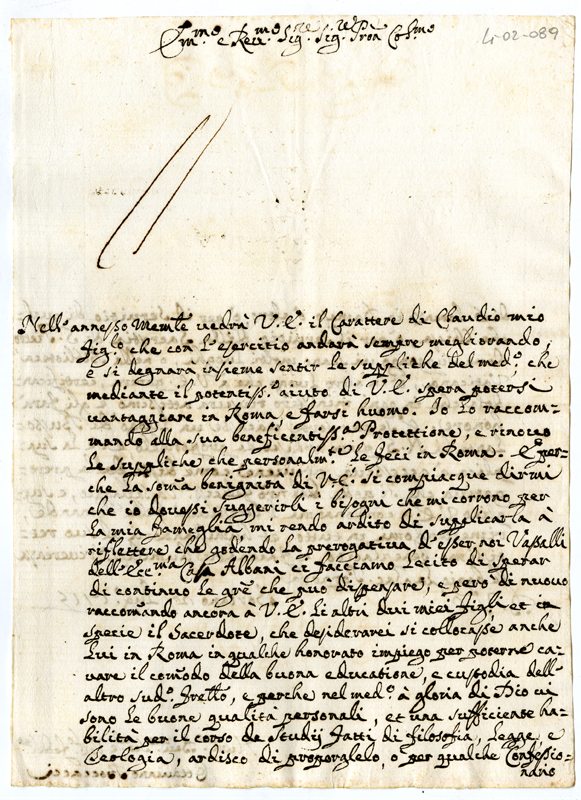 Em.mo e Rev.mo Sig.re Sig.re Pron Col.mo
4-02-089
Nell'annesso Mem.le vedrà V.E. il Carattere di Claudio mio
fig.lo, che con l'esercitio andarà sempre megliorando,
e si degnarà insieme sentir le suppliche del med.o, che
mediante il potentiss.o aiuto di V.E. spera potersi
vantaggiare in Roma, e farsi huomo. Io lo raccom-
mando alla sua beneficentiss.a Protettione, e rinovo
le suppliche che personalm.te le feci in Roma. E per-
che la som̃a benignità di V.E. si compiacque dirmi
che io dovessi suggerirli i bisogni che mi corrono per
la mia fameglia mi rendo ardito di supplicarla à
riflettere che godendo la prerogativa d'esser noi Vassalli
dell'Ecc.ma Casa Albani ci facciamo lecito di sperar
di continuo le grẽ che può dispensare, e però di nuovo
raccom̃ando ancora à V.E. li altri dui miei figli, et in
specie il Sacerdote, che desiderarei si collocasse anche
lui in Roma in qualche honorato impiego per poterne ca-
vare il com̃odo della buona educatione, e custodia dell'
altro sud.o frello, e perche nel med.o à gloria di Dio vi
sono le buone qualità personali, et una sufficiente ha-
bilità per il corso de Studij fatti di filosofia, Legge, e
Teologia, ardisco di proporglelo, o per qualche Confessio-
nario